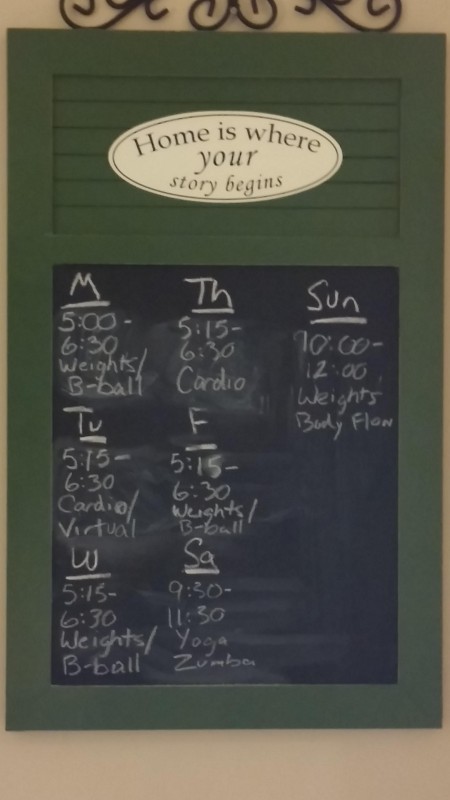 Home is where
your
story begins
M
5:00-
6:30
Weights/
B-ball
Tu
5:15-
6:30
Cardio/
Virtual
W
5:15-
6:30
Weights/
B-ball
Th
5:15-
6:30
Cardio
F
5:15-
6:30
Weights/
B-ball
Sa
9:30-
11:30
Yoga
Zumba
Sun
10:00-
12:00
Weights
Body Flow